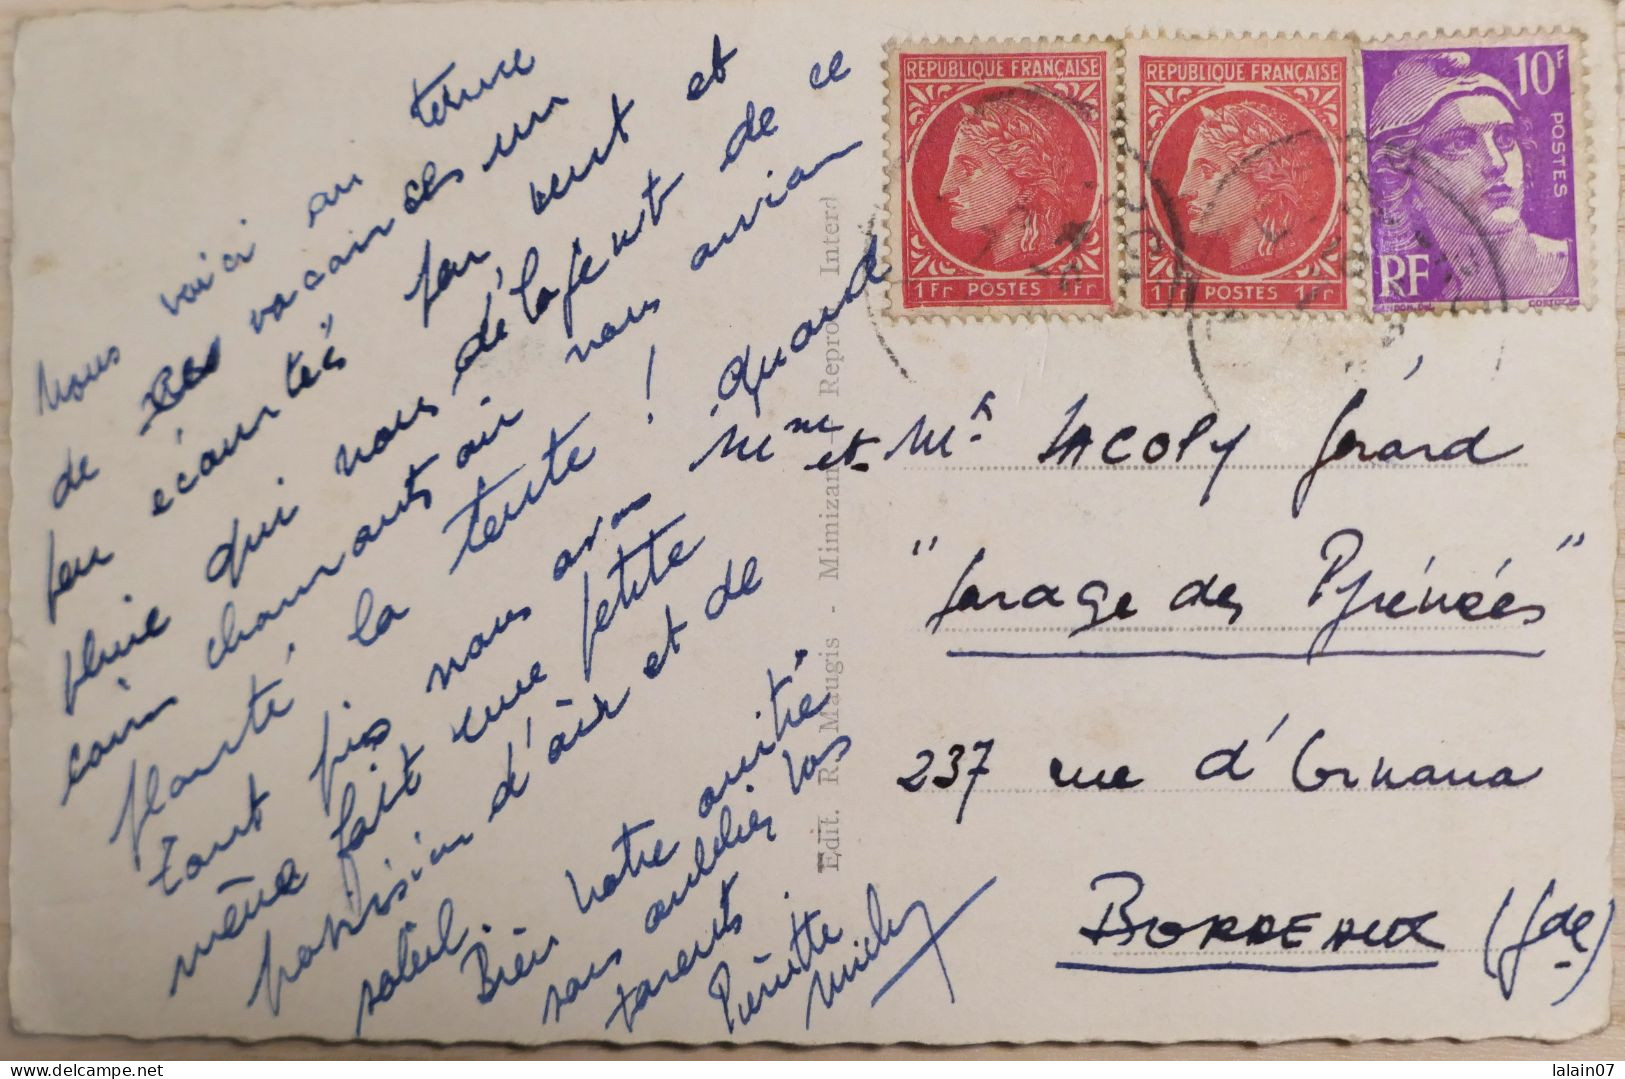 Nous voici au terme
de vacances un
peu écourtés par vent et
pluie qui nous délogent de ce
coin charmant où nous avions
planté la tente !
Tant pis nous avons quand
même fait une petite
provision d'air et de
soleil.
Bien notre amitié
sans oublier vos
parents.
Pierrette
Michy
Edit. R. Maugis - Mimizan - Repro. Interd
REPUBLIQUE FRANÇAISE
1 Fr POSTES 1 Fr
REPUBLIQUE FRANÇAISE
1 Fr POSTES 1 Fr
10F
POSTES
RF
GANDON.DEL
CORTOT.SC
Mme et Mr LACOLY Gérard
"Garage des Pyrénées"
237 rue d'Ornano
BORDEAUX (Gde)
lalain07